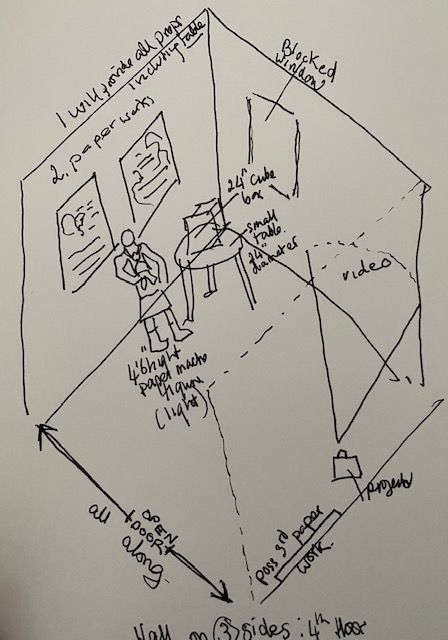 I will provide all props
including table
2. paper works
Blocked
window
24" cube
box
small
table
24"
diameter
video
4'6" hight
papel mache
figure
(light)
projector
poss 3rd paper
work.
all
OPEN
DOOR
along
Wall on 3 sides: 4th floor